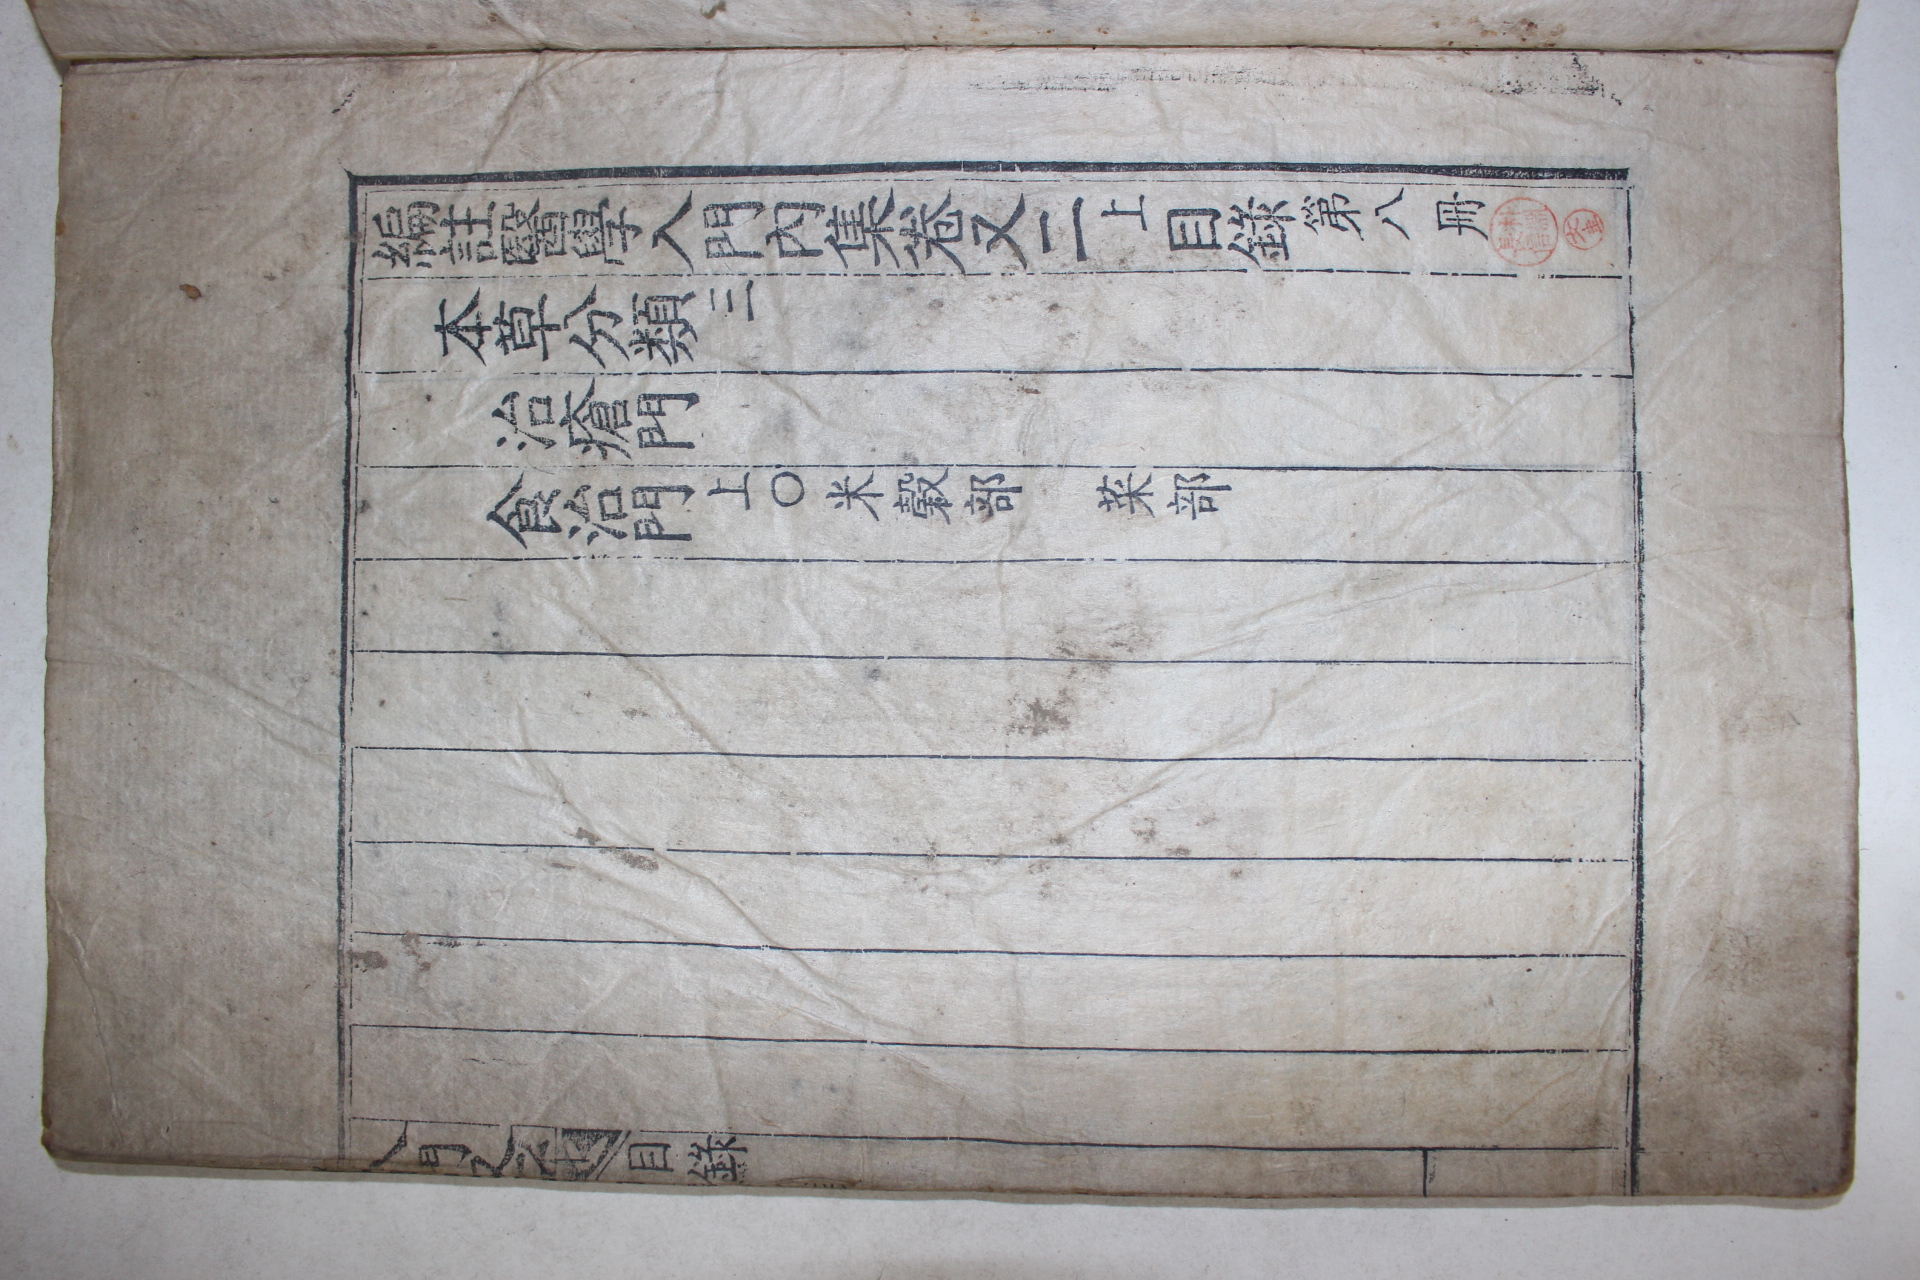 編註醫學入門內集卷又二上目錄第八冊
本草分類三
治瘡門
食治門上〇米穀部 菜部
目錄